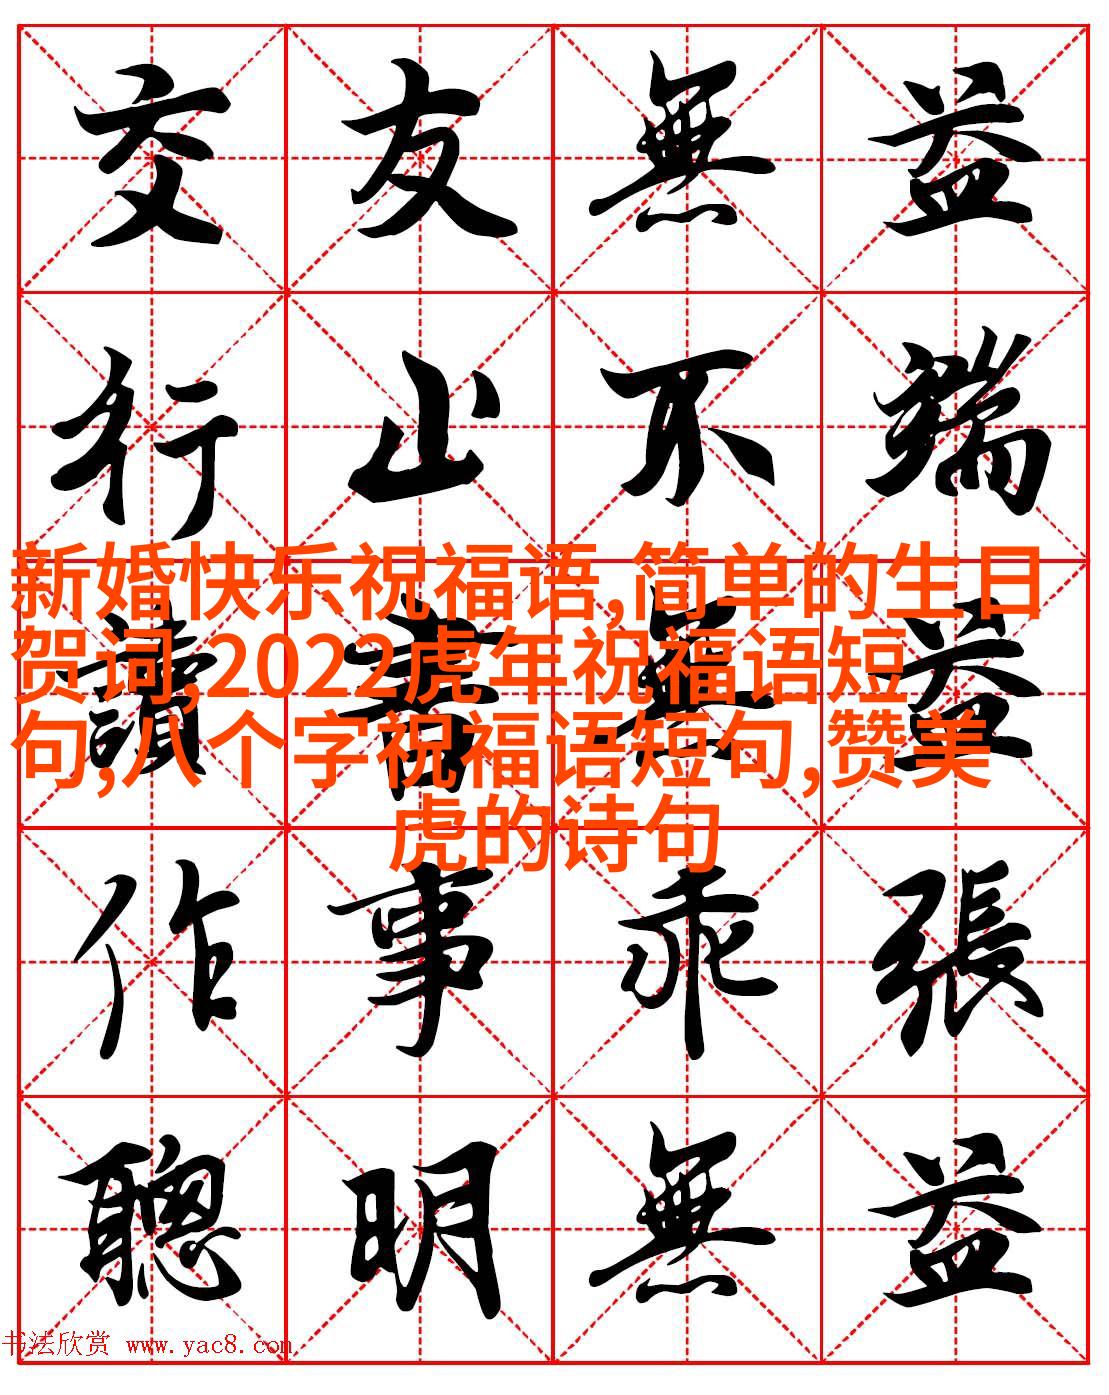 交友無益
行止不端
新婚快乐祝福语,简单的生日
贺词,2022虎年祝福语短
句,八个字祝福语短句,赞美
虎的诗句
讀書無益
作事乖張
聰明無益
书法欣赏 www.yac8.com